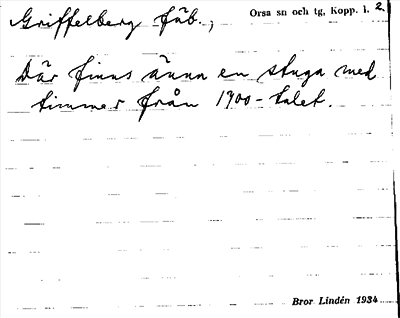 Griffelberg fäb.,
Orsa sn och tg, Kopp. l. 2.
Där finns ännu en stuga med
timmer från 1700-talet.
Bror Lindén 1934